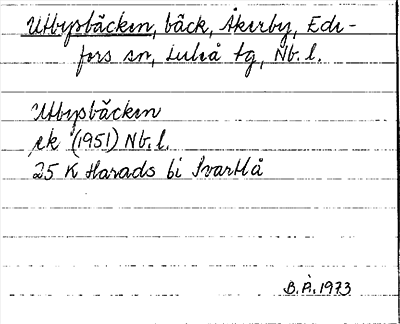 Utbysbäcken, bäck, Åkerby, Ede-
fors sn, Luleå tg, Nb. l.
Utbysbäcken
ek (1951) Nb. l.
25 K Harads bi Svartlå
B.Å. 1973